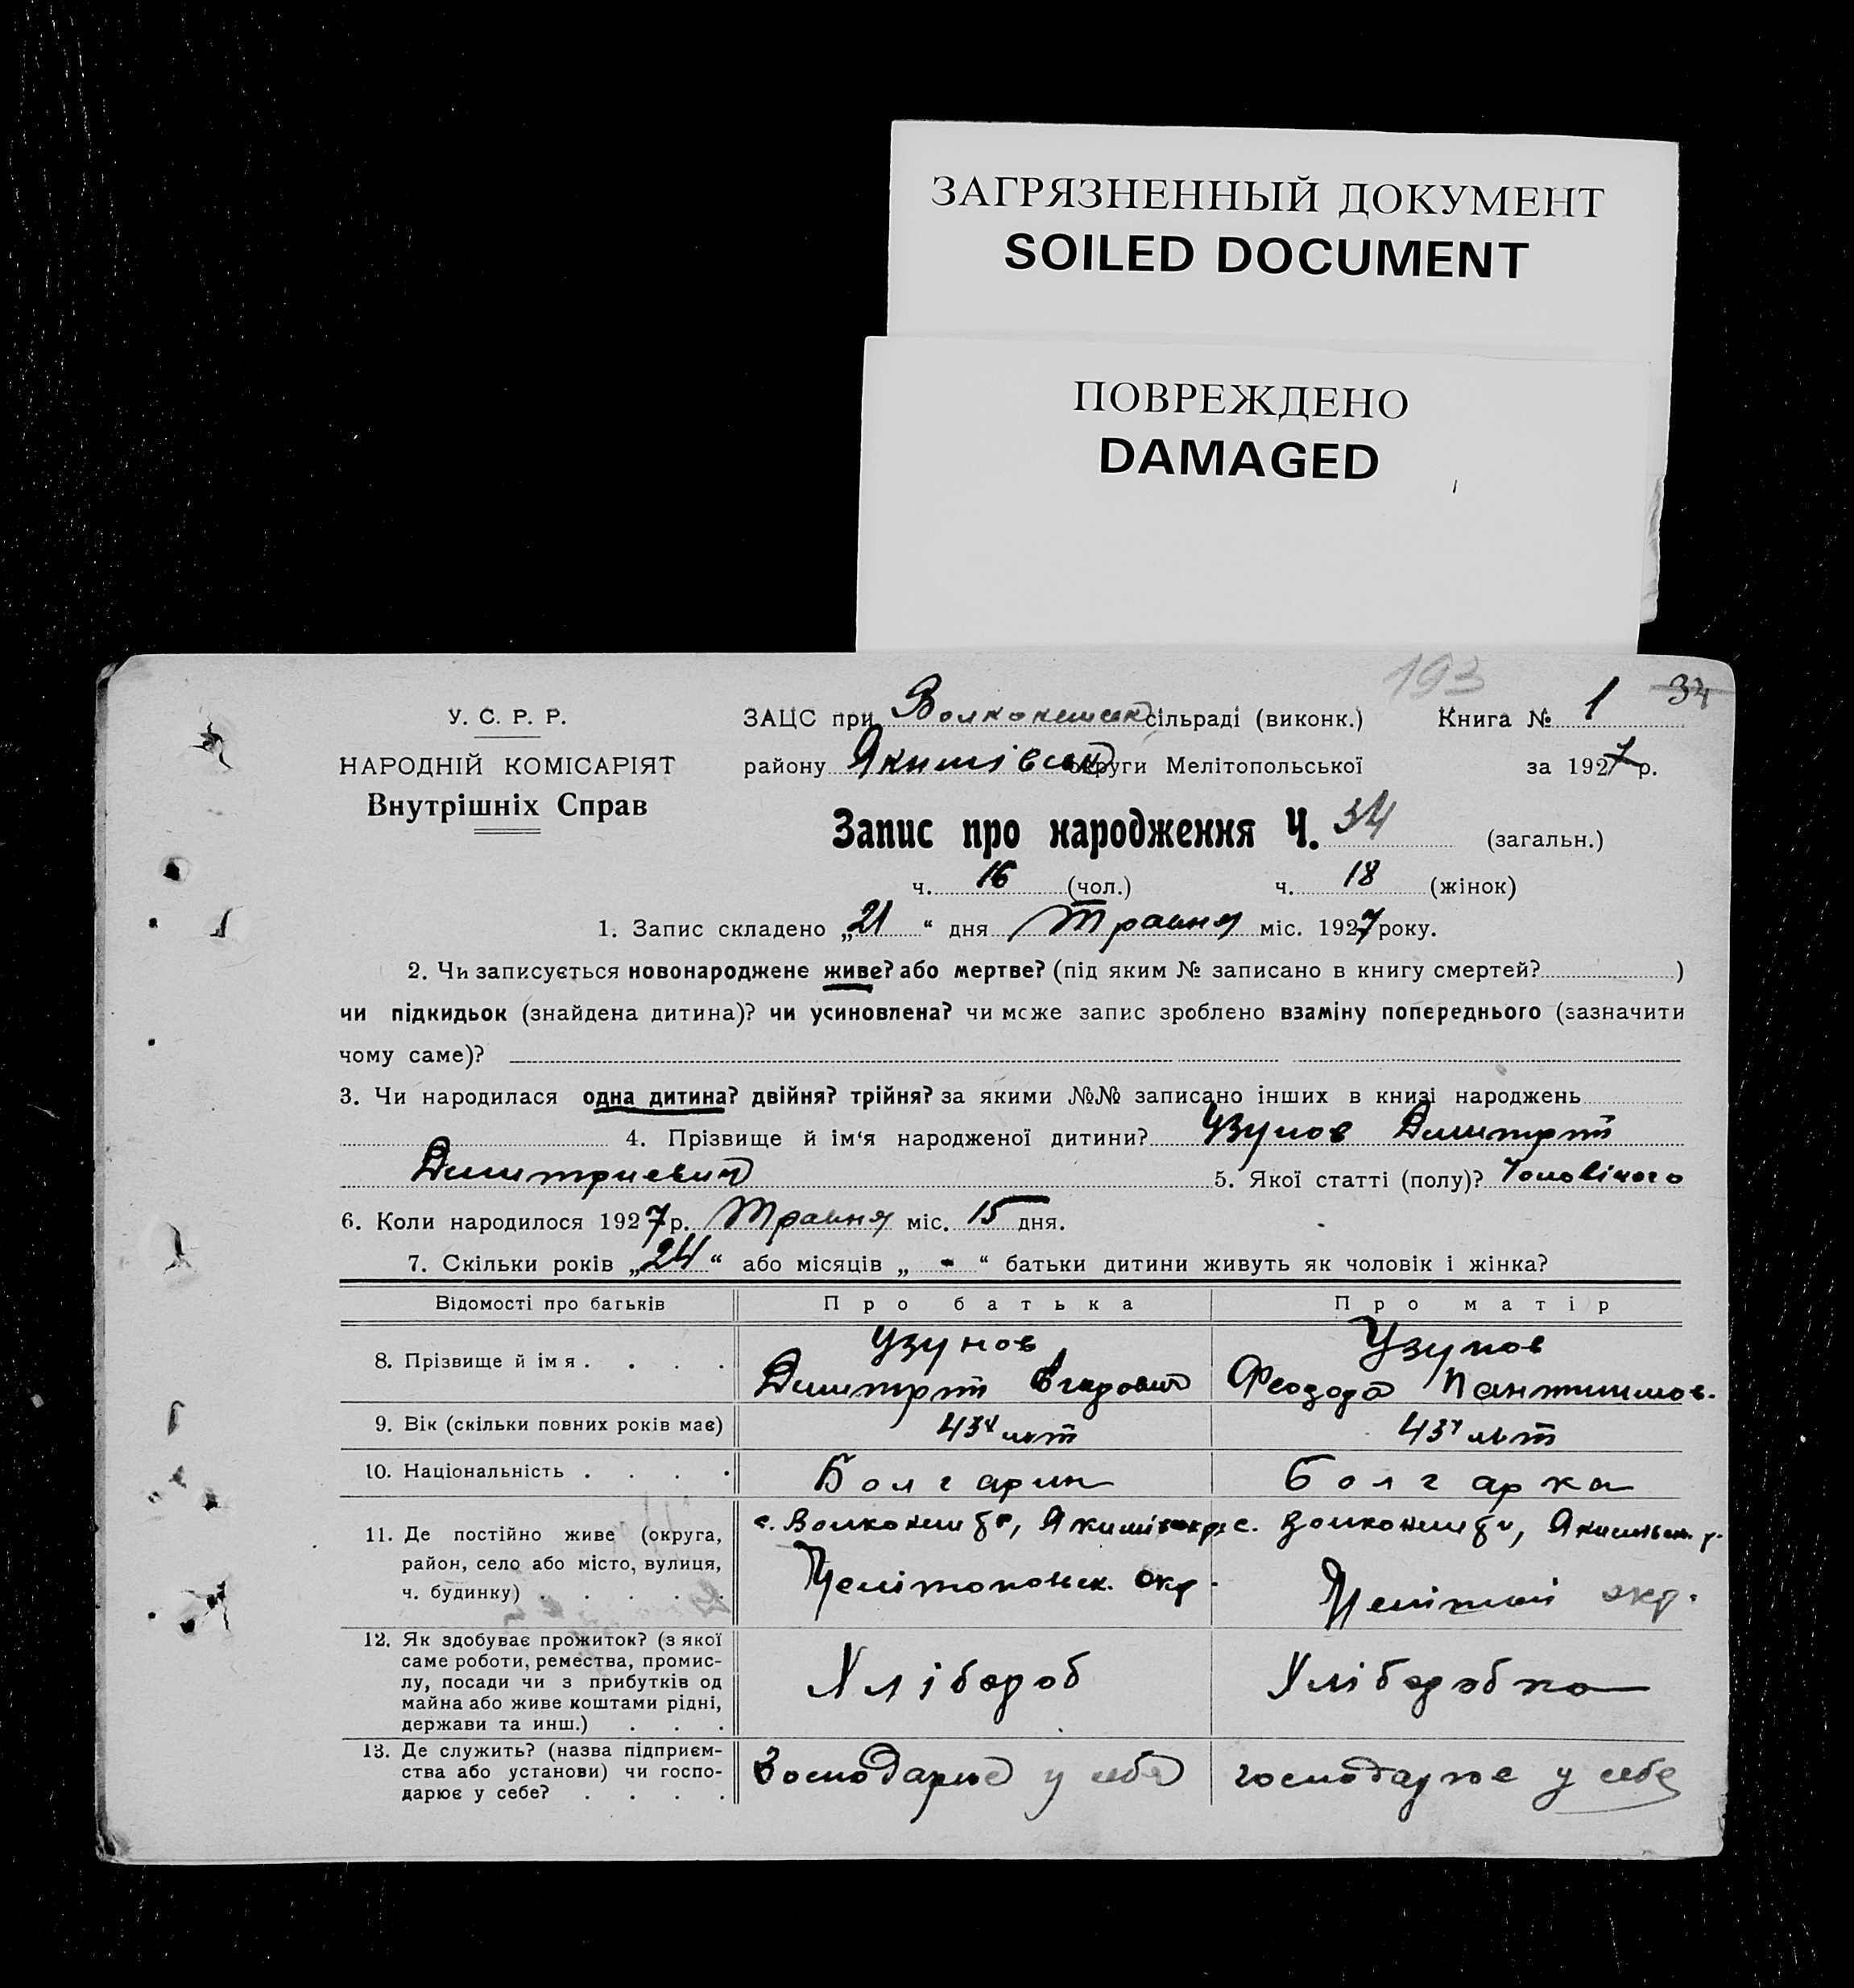 ЗАГРЯЗНЕННЫЙ ДОКУМЕНТ
SOILED DOCUMENT
ПОВРЕЖДЕНО
DAMAGED
193
34
У. С. Р. Р.
НАРОДНІЙ КОМІСАРІЯТ
Внутрішніх Справ
ЗАЦС при сільраді (виконк.) Книга № 1
району Якимівськ округи Мелітопольської за 1927 р.
Запис про народження Ч. 34 (загальн.)
ч. 16 (чол.) ч. 18 (жінок)
1. Запис складено „21“ дня Травня міс. 1927 року.
2. Чи записується новонароджене живе? або мертве? (під яким № записано в книгу смертей? )
чи підкидьок (знайдена дитина)? чи усиновлена? чи може запис зроблено взаміну попереднього (зазначити
чому саме)?
3. Чи народилася одна дитина? двійня? трійня? за якими №№ записано інших в книзі народжень
4. Прізвище й ім‘я народженої дитини? Узунов Димитрт
Димитриевич 5. Якої статті (полу)? Чоловічого
6. Коли народилося 1927 р. Травня міс. 15 дня.
7. Скільки років „24“ або місяців „ - “ батьки дитини живуть як чоловік і жінка?
Відомості про батьків Про батька Про матір
8. Прізвище й імя . . . . Узунов Узунов
Димитрт Феодора
9. Вік (скільки повних років має) 43 лѣт 43 лѣт
10. Національність . . . . Болгарин Болгарка
11. Де постійно живе (округа,
район, село або місто, вулиця,
ч. будинку) . . . . .
Мелітопольск. окр. окр.
12. Як здобуває прожиток? (з якої
саме роботи, ремества, промис-
лу, посади чи з прибутків од
майна або живе коштами рідні,
держави та инш.) . . .
Хлібороб Хліборобка
13. Де служить? (назва підприєм-
ства або установи) чи госпо-
дарює у себе? . . . .
Господарює у себе господарює у себе